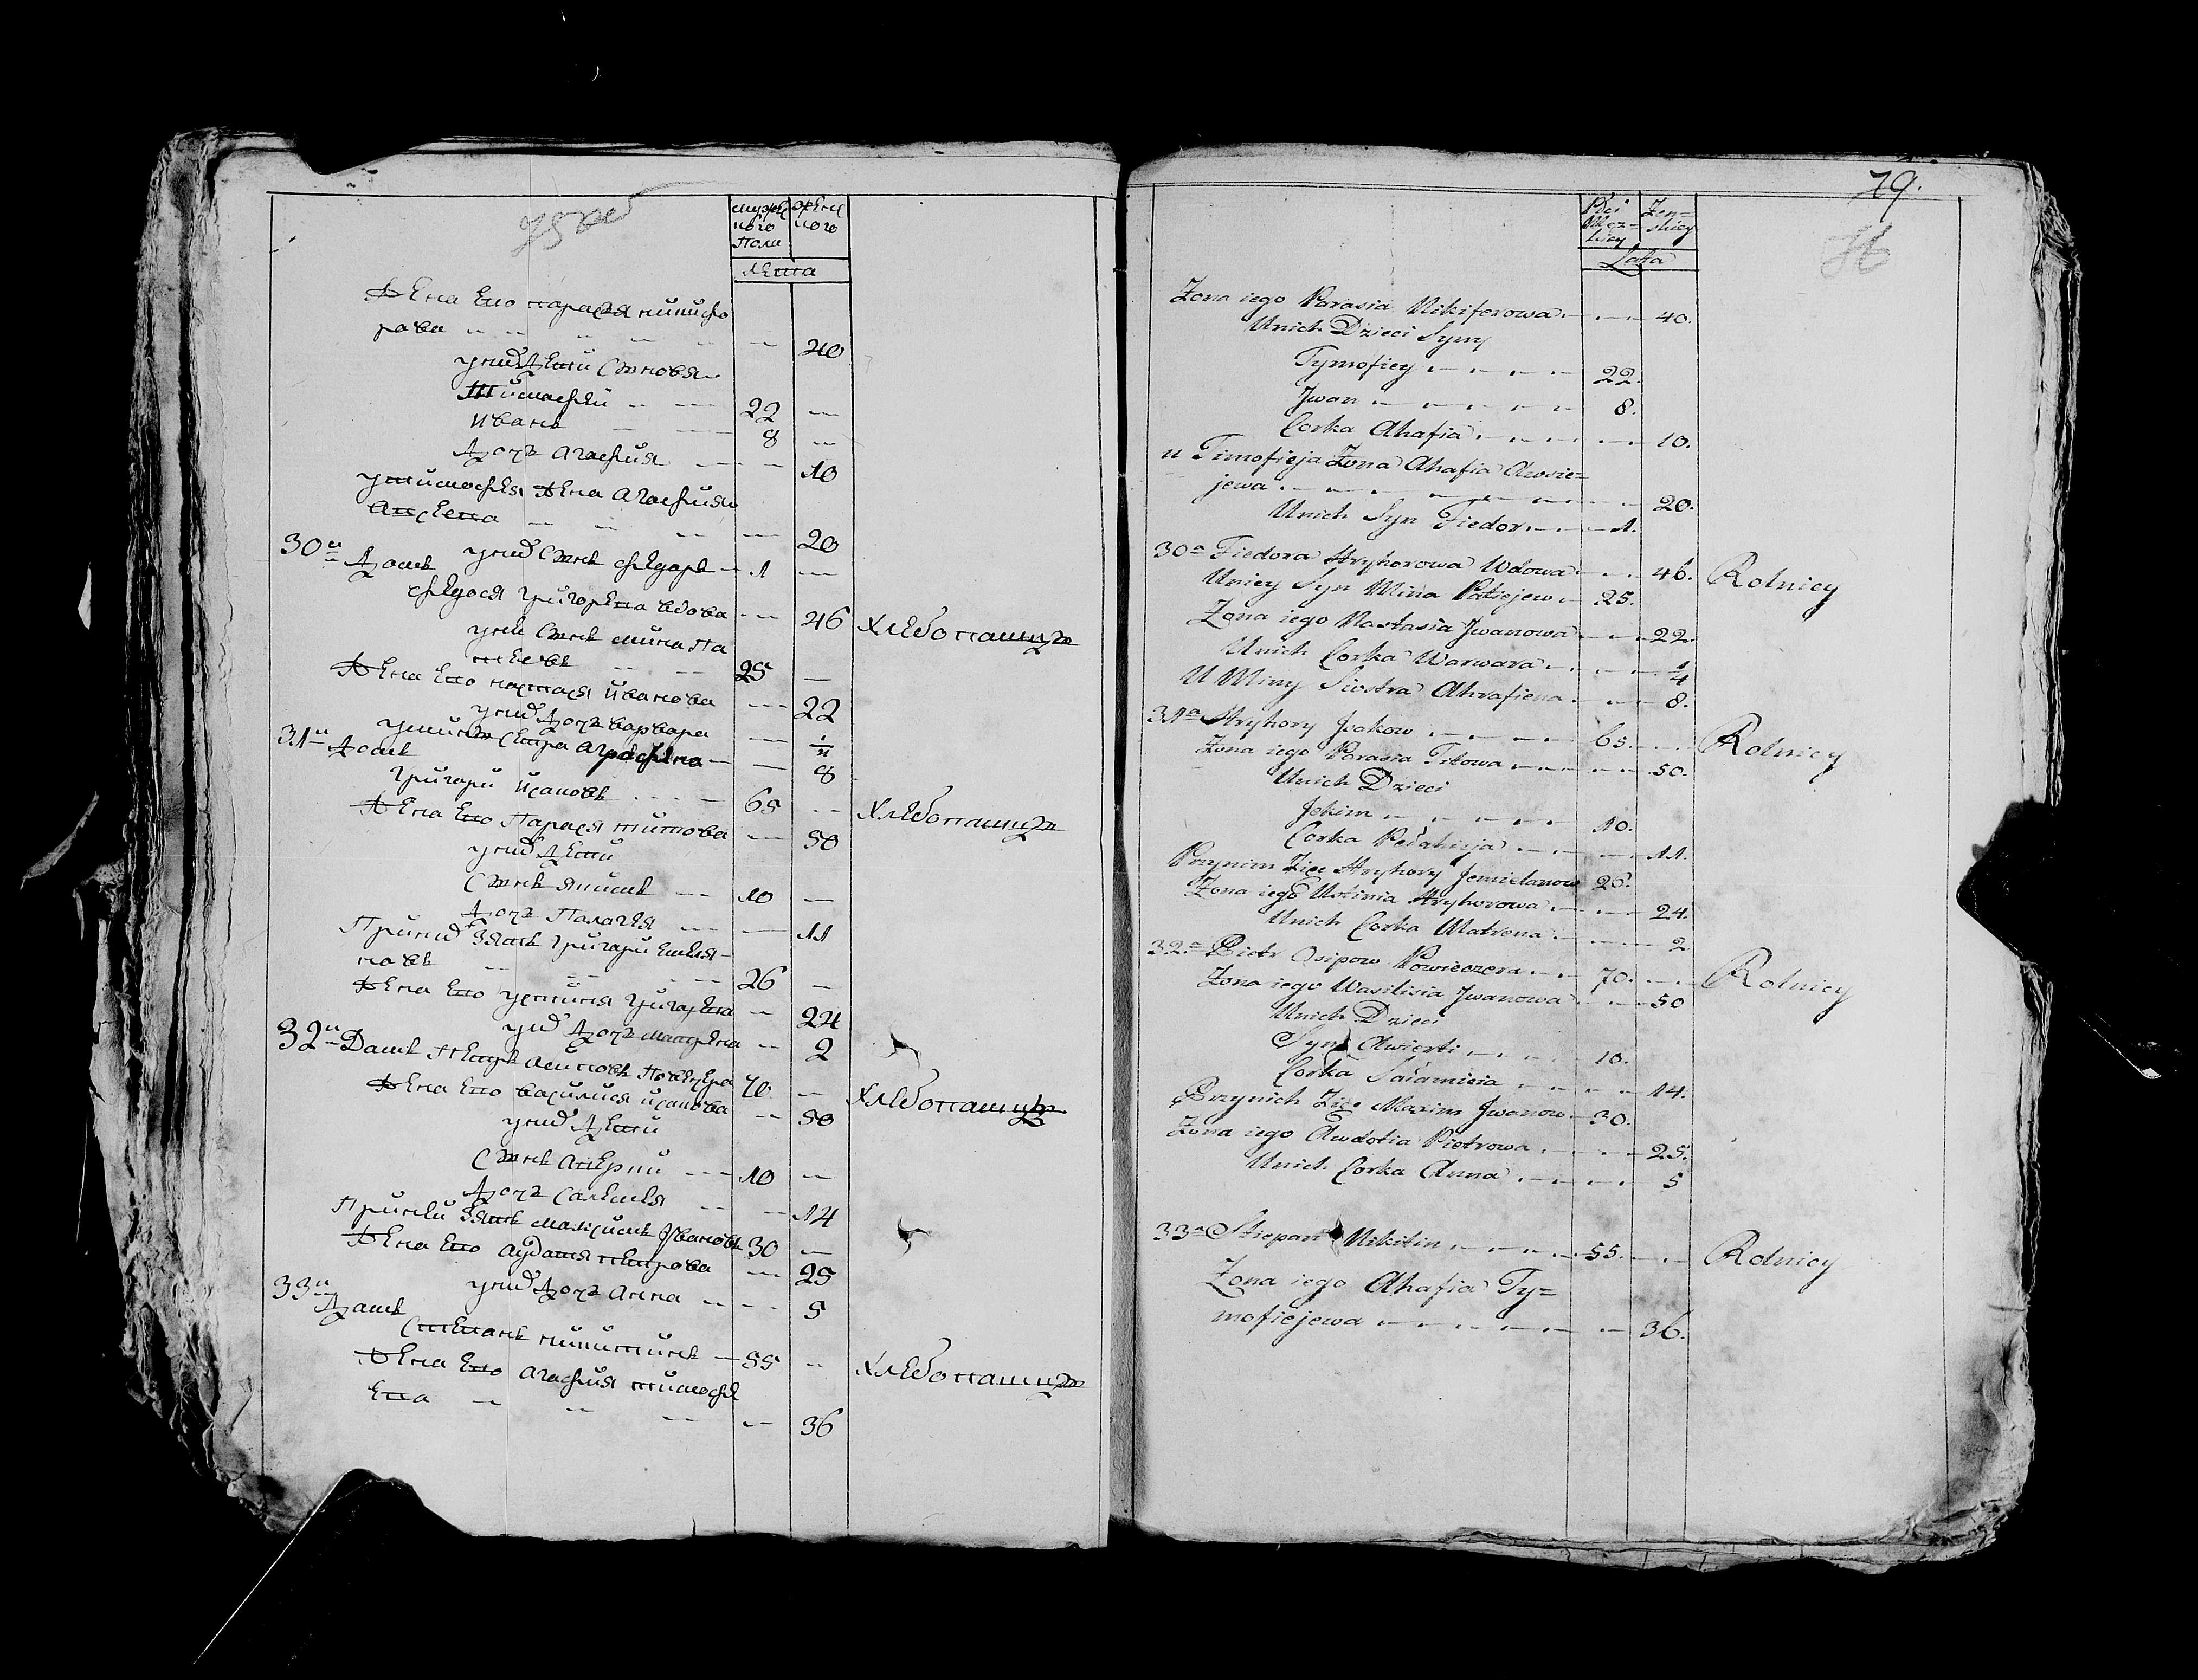 мужес
кого
Пола
женс
кого
лета
Жена Его парасея никифо
рова 40
унихъ Дети Сыновя
Тимофей 22
иванъ 8
Дочь агафия 10
утимофея Жена агафия
20
унихъ Сынъ федоръ 1
30 Домъ
федося григорева вдова 46 хлебопашцы
уней Сынъ мина Па
теевъ 25
Жена Его настася иванова 22
унихъ Дочь варвара
умины Сестра аграфена 8
31 Домъ
григори исаковъ 65 хлебопашцы
Жена Его Парася титова 50
унихъ Дети
Сынъ якимъ 10
Дочь Палагея 11
Принихъ Зять григори Емеля-
новъ 26
Жена Его устиня григорева 24
унихъ Дочь матрена 2
32 Домъ Петръ осиповъ Повечера 70 хлебопашцы
Жена Его василися 50
унихъ Дети
Сынъ 10
Дочь 14
Зять максимъ Ивановъ 30
Жена Его авдотя петрова 25
унихъ Дочь анна 5
33 Домъ
Степанъ никитинъ 55 хлебопашцы
Жена Его агафия тимофе
ева 36
79.
Płci
Męz=
kiey
Zen=
skiey
Lata
Zona iego Parasia Nikiferowa 40.
Unich Dzieci Syny
Tymofiey 22.
Jwan 8.
Corka Ahafia 10.
u Timofieja Zona Ahafia Awsie=
jewa 20.
Unich Syn Fiedor 1.
30a Fiedora Hryhorowa Wdowa 46. Rolnicy
Uniey Syn Mina Patiejew 25.
Zona iego Nastasia Jwanowa 22.
Unich Corka Warwara 1/4
U Miny Siostra Ahrafiena 8.
31a Hryhory Jsakow 65. Rolnicy
Zona iego Parasia Titowa 50.
Unich Dzieci
Jekim 10.
Corka Pełahieja 11.
Przynim Zięc Hryhory Jemielanow 26.
Zona iego Ustinia Hryhorowa 24.
Unich Corka Matrena 2.
32a Piotr Osipow Powieczera 70. Rolnicy
Zona iego Wasilisia Jwanowa 50
Unich Dzieci
Syn 10.
Corka 14.
Przynich Zięc Maxim Jwanow 30.
Zona iego Awdotia Piotrowa 25.
Unich Corka Anna 5
33a Stiepan Nikitin 55. Rolnicy
Zona iego Ahafia Ty=
mofiejewa 36.